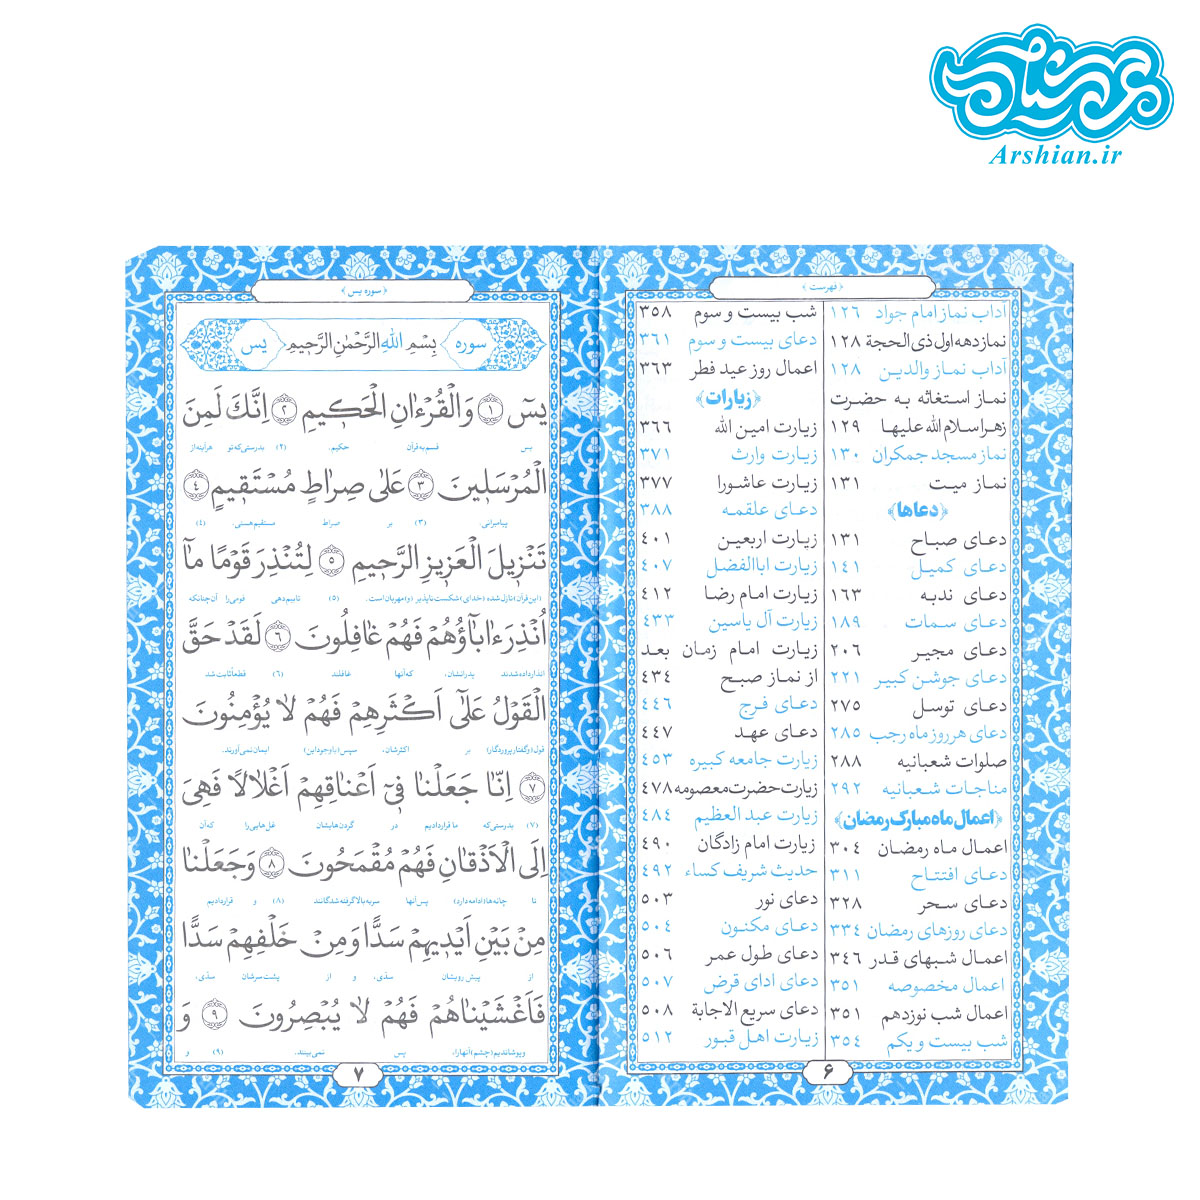 عرشیان
Arshian.ir
﴿فهرست﴾
آداب نماز امام جواد ۱۲۶
نماز دهه اول ذی الحجة ۱۲۸
آداب نماز والدین ۱۲۸
نماز استغاثه به حضرت
زهرا سلام الله علیها ۱۲۹
نماز مسجد جمکران ۱۳۰
نماز میت ۱۳۱
﴿دعاها﴾
دعای صباح ۱۳۱
دعای کمیل ۱۴۱
دعای ندبه ۱۶۳
دعای سمات ۱۸۹
دعای مجیر ۲۰۶
دعای جوشن کبیر ۲۲۱
دعای توسل ۲۷۵
دعای هر روز ماه رجب ۲۸۵
صلوات شعبانیه ۲۸۸
مناجات شعبانیه ۲۹۲
﴿اعمال ماه مبارک رمضان﴾
اعمال ماه رمضان ۳۰۴
دعای افتتاح ۳۱۱
دعای سحر ۳۲۸
دعای روزهای رمضان ۳۳۴
اعمال شبهای قدر ۳۴۶
اعمال مخصوصه ۳۵۱
اعمال شب نوزدهم ۳۵۱
شب بیست و یکم ۳۵۴
شب بیست و سوم ۳۵۸
دعای بیست و سوم ۳۶۱
اعمال روز عید فطر ۳۶۳
﴿زیارات﴾
زیارت امین الله ۳۶۶
زیارت وارث ۳۷۱
زیارت عاشورا ۳۷۷
دعای علقمه ۳۸۸
زیارت اربعین ۴۰۱
زیارت اباالفضل ۴۰۷
زیارت امام رضا ۴۱۲
زیارت آل یاسین ۴۳۳
زیارت امام زمان بعد
از نماز صبح ۴۳۴
دعای فرج ۴۴۶
دعای عهد ۴۴۷
زیارت جامعه کبیره ۴۵۳
زیارت حضرت معصومه ۴۷۸
زیارت عبد العظیم ۴۸۴
زیارت امام زادگان ۴۹۰
حدیث شریف کساء ۴۹۲
دعای نور ۵۰۳
دعای مکنون ۵۰۴
دعای طول عمر ۵۰۶
دعای ادای قرض ۵۰۷
دعای سریع الاجابة ۵۰۸
زیارت اهل قبور ۵۱۲
۶
﴿سوره یس﴾
سوره بِسْمِ اللهِ الرَّحْمٰنِ الرَّحیمِ یس
یسٓ ﴿۱﴾ وَالْقُرْءَانِ الْحَکیمِ ﴿۲﴾ اِنَّكَ لَمِنَ
یس قسم به قرآن حکیم. (۲) بدرستی که تو هرآینه از
الْمُرْسَلینَ ﴿۳﴾ عَلىٰ صِراطٍ مُسْتَقیمٍ ﴿۴﴾
پیامبرانی. (۳) بر صراط مستقیم هستی. (۴)
تَنْزیلَ الْعَزیزِ الرَّحیمِ ﴿۵﴾ لِتُنْذِرَ قَوْمًا مآ
(این قرآن) نازل شده (خدای) شکست ناپذیر (و) مهربان است. (۵) تا بیم دهی قومی را آن چنانکه
اُنْذِرَ ءَابآؤُهُمْ فَهُمْ غافِلُونَ ﴿۶﴾ لَقَدْ حَقَّ
انذار داده شدند پدرانشان، که آنها غافلند (۶) قطعاً ثابت شد
الْقَوْلُ عَلىٰٓ اَکْثَرِهِمْ فَهُمْ لا یُؤْمِنُونَ
قول (و گفتار پروردگار) بر اکثرشان، سپس (با وجود این) ایمان نمی‌آورند.
﴿۷﴾ اِنّا جَعَلْنا فیٓ اَعْناقِهِمْ اَغْلالًا فَهِیَ
(۷) بدرستی که ما قرار دادیم در گردن هایشان غل هایی را که آن
اِلَى الْاَذْقانِ فَهُمْ مُقْمَحُونَ ﴿۸﴾ وَ جَعَلْنا
تا چانه ها (ادامه دارد) پس آنها سر به بالا گرفته شدگانند (۸) و قرار دادیم
مِنْ بَیْنِ اَیْدیهِمْ سَدًّا وَ مِنْ خَلْفِهِمْ سَدًّا
از پیش رویشان سدّی، و از پشت سرشان سدّی،
فَاَغْشَیْناهُمْ فَهُمْ لا یُبْصِرُونَ ﴿۹﴾ وَ
و پوشاندیم (چشم) آنها را، پس نمی بینند. (۹) و
۷